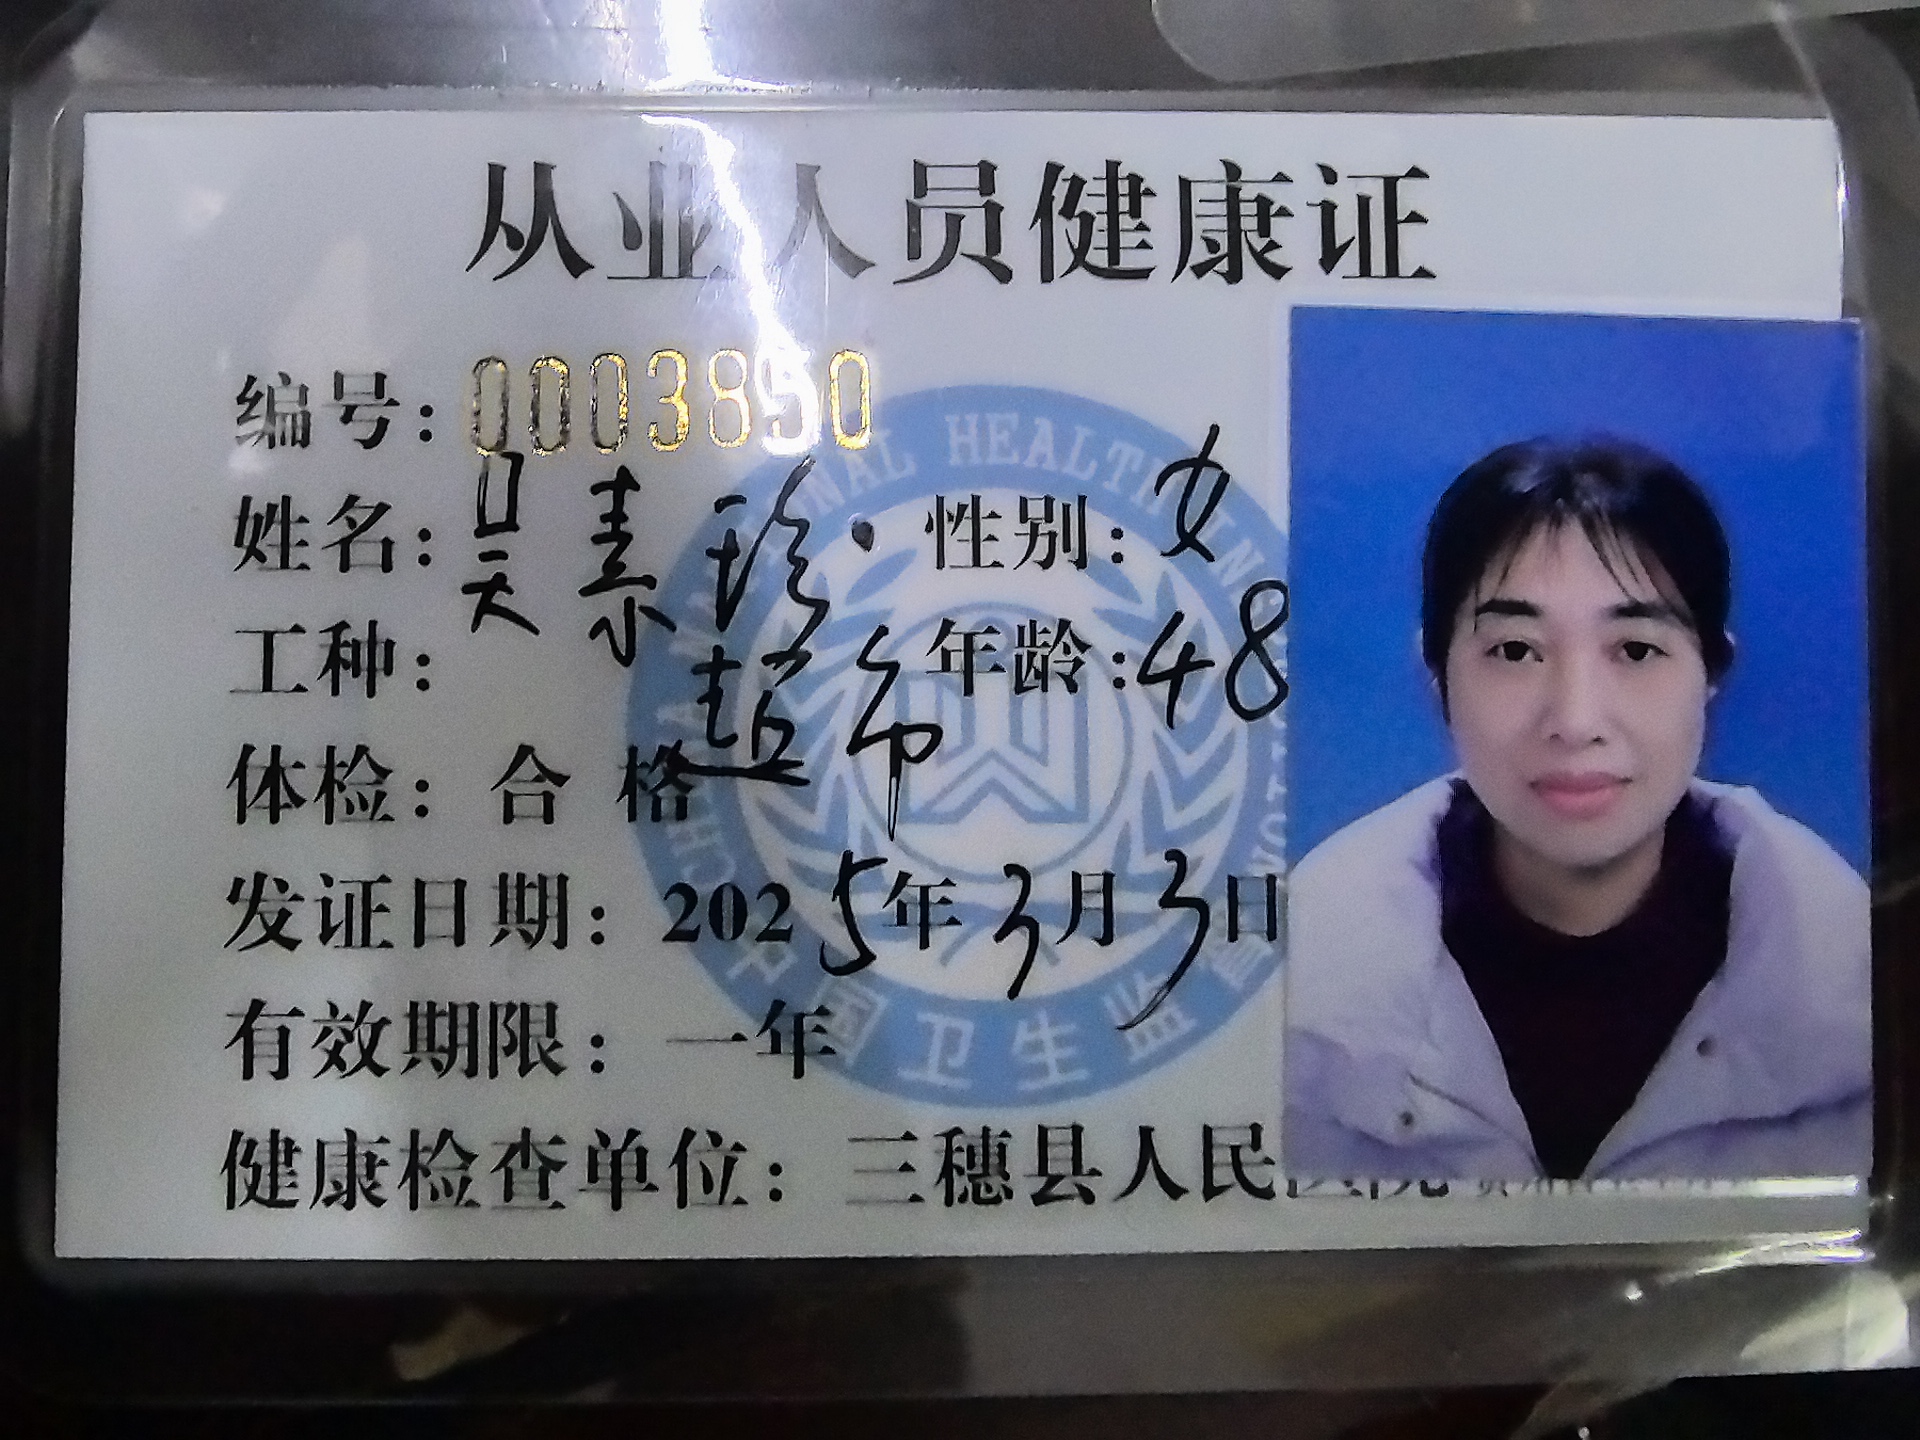 从业人员健康证
编号：0003890
姓名：吴素珍 性别：女
工种： 年龄：48
体检：合格
发证日期：2025年3月3日
有效期限：一年
健康检查单位：三穗县人民医院
中国卫生监督